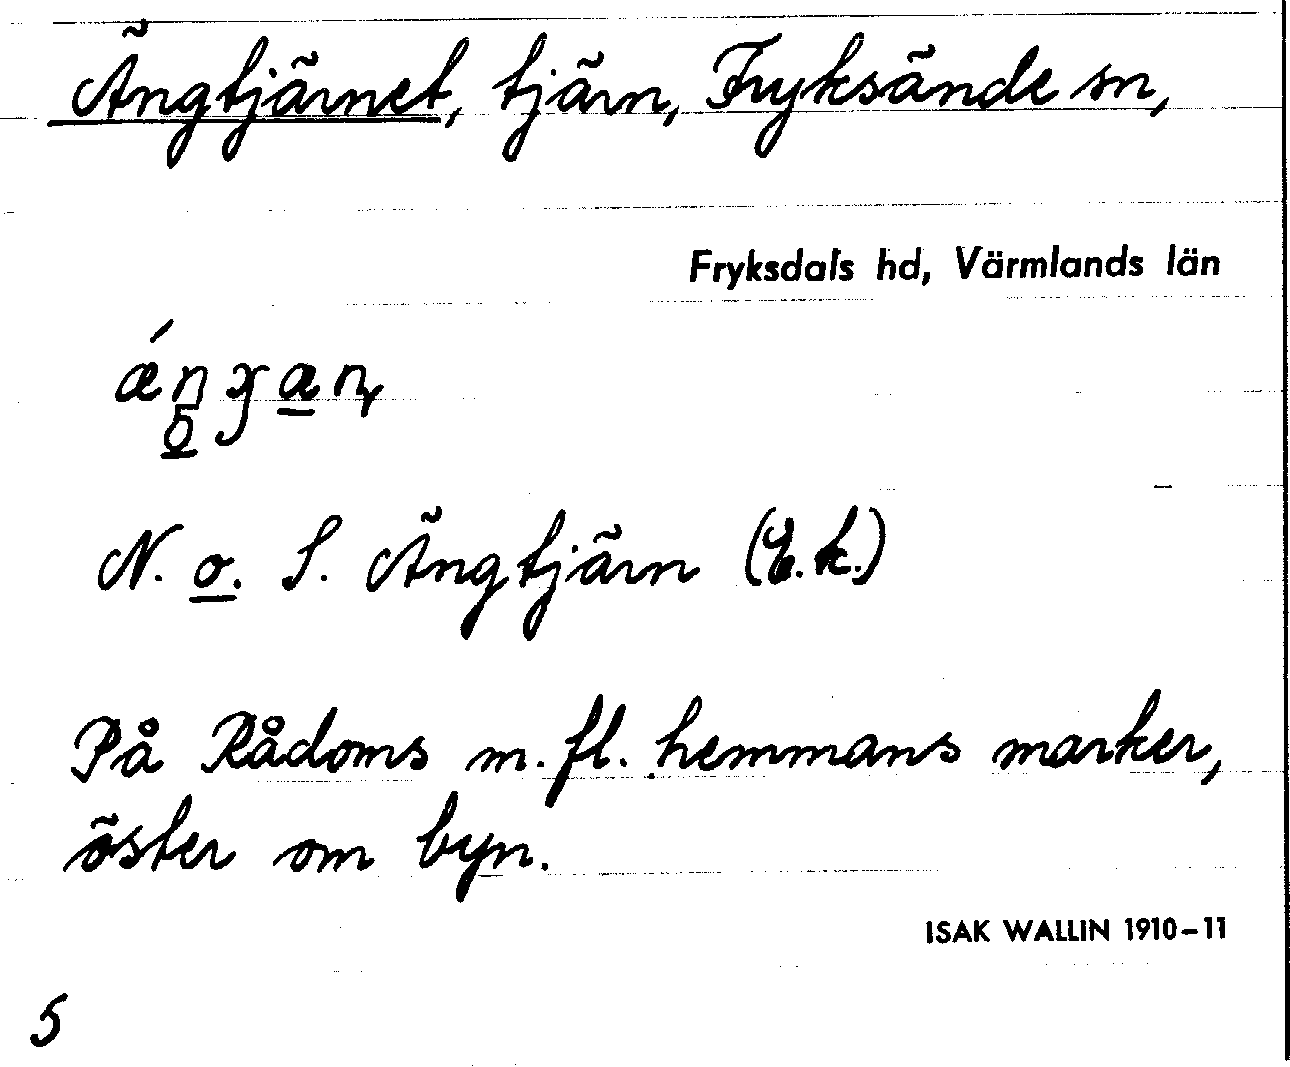 Ängtjärnet, tjärn, Fryksände sn,
Fryksdals hd, Värmlands län
N. o. S. Ängtjärn (E.k.)
På Rådoms m.fl. hemmans marker,
öster om byn.
ISAK WALLIN 1910-11
5